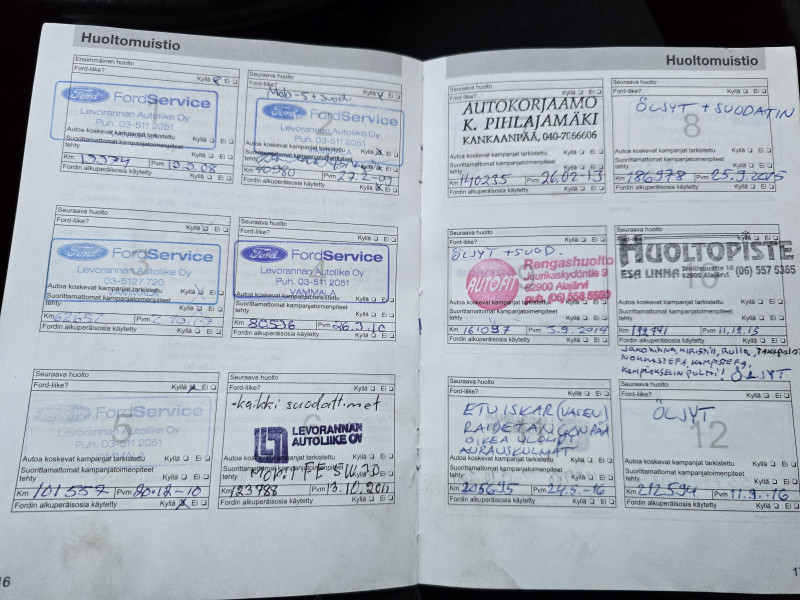 Huoltomuistio
Ensimmäinen huolto
Ford-liike? Kyllä Ei
Ford FordService
Levorannan Autoliike Oy
Puh. 03-511 2051
Autoa koskevat kampanjat tarkistettu Kyllä Ei
Suorittamattomat kampanjatoimenpiteet
tehty Kyllä Ei
Km Pvm
Fordin alkuperäisosia käytetty Kyllä Ei
Seuraava huolto
Ford-liike? Kyllä Ei
Ford FordService
Levorannan Autoliike Oy
Puh. 03-511 2051
Autoa koskevat kampanjat tarkistettu Kyllä Ei
tehty
Km 40980 Pvm 27.2-09
Fordin alkuperäisosia käytetty Kyllä Ei
Seuraava huolto
Ford-liike? Kyllä Ei
Ford FordService
Levorannan Autoliike Oy
03-5127 720
Suorittamattomat kampanjatoimenpiteet
tehty Kyllä Ei
Km 62652 Pvm
Fordin alkuperäisosia käytetty Kyllä Ei
Seuraava huolto
Ford-liike? Kyllä Ei
Ford FordService
Levorannan Autoliike Oy
03-511 2051
VAMMALA
Suorittamattomat kampanjatoimenpiteet
tehty Kyllä Ei
Km 80536 Pvm 26.3.10
Fordin alkuperäisosia käytetty Kyllä Ei
Seuraava huolto
Ford-liike? Kyllä Ei
Ford FordService
Levorannan Autoliike Oy
Puh. 03-511 2051
Autoa koskevat kampanjat tarkistettu Kyllä Ei
Suorittamattomat kampanjatoimenpiteet
tehty Kyllä Ei
Km 101557 Pvm 20.12-10
Fordin alkuperäisosia käytetty Kyllä Ei
Seuraava huolto
-kaikki suodattimet
LEVORANNAN
AUTOLIIKE OY
Autoa koskevat kampanjat tarkistettu Kyllä Ei
Suorittamattomat kampanjatoimenpiteet
tehty
Km 123788 Pvm 13.10.2011
Fordin alkuperäisosia käytetty Kyllä Ei
16
Huoltomuistio
Seuraava huolto
Ford-liike? Kyllä Ei
AUTOKORJAAMO
K. PIHLAJAMÄKI
KANKAANPÄÄ, 040-7066606
Autoa koskevat kampanjat tarkistettu Kyllä Ei
Suorittamattomat kampanjatoimenpiteet
tehty Kyllä Ei
Km 140235 Pvm 26.02-13
Fordin alkuperäisosia käytetty Kyllä Ei
Seuraava huolto
Ford-liike? Kyllä Ei
ÖLJYT + SUODATIN
8
Autoa koskevat kampanjat tarkistettu Kyllä Ei
Suorittamattomat kampanjatoimenpiteet
tehty Kyllä Ei
Km 186978 Pvm 25.9.2015
Fordin alkuperäisosia käytetty Kyllä Ei
Seuraava huolto
Ford-liike? Kyllä Ei
ÖLJYT + SUOD.
AUTOFIT
Rengashuolto
Juurikaskydöntie 9
62900 Alajärvi
Autoa koskevat kampanjat
Suorittamattomat kampanjatoimenpiteet
tehty Kyllä Ei
Km 161097 Pvm 3.9.2014
Fordin alkuperäisosia käytetty Kyllä Ei
Seuraava huolto
HUOLTOPISTE
ESA LINNA Teollisuustie 10 (06) 557 5365
62900 Alajärvi
Autoa koskevat kampanjat tarkistettu Kyllä Ei
Suorittamattomat kampanjatoimenpiteet
tehty Kyllä Ei
Km Pvm 11.12.15
Fordin alkuperäisosia käytetty Kyllä Ei
ÖLJYT
Seuraava huolto
Ford-liike? Kyllä Ei
ETU ISKAR (VASEN)
RAIDETANGON PÄÄ
OIKEA ULOMPI
AURAUSKULMAT
Autoa koskevat kampanjat tarkistettu Kyllä Ei
Suorittamattomat kampanjatoimenpiteet
tehty Kyllä Ei
Km 205695 Pvm 24.5.-16
Fordin alkuperäisosia käytetty Kyllä Ei
Seuraava huolto
Ford-liike? Kyllä Ei
ÖLJYT
12
Autoa koskevat kampanjat tarkistettu Kyllä Ei
Suorittamattomat kampanjatoimenpiteet
tehty Kyllä Ei
Km 212594 Pvm 11.9.-16
Fordin alkuperäisosia käytetty Kyllä Ei